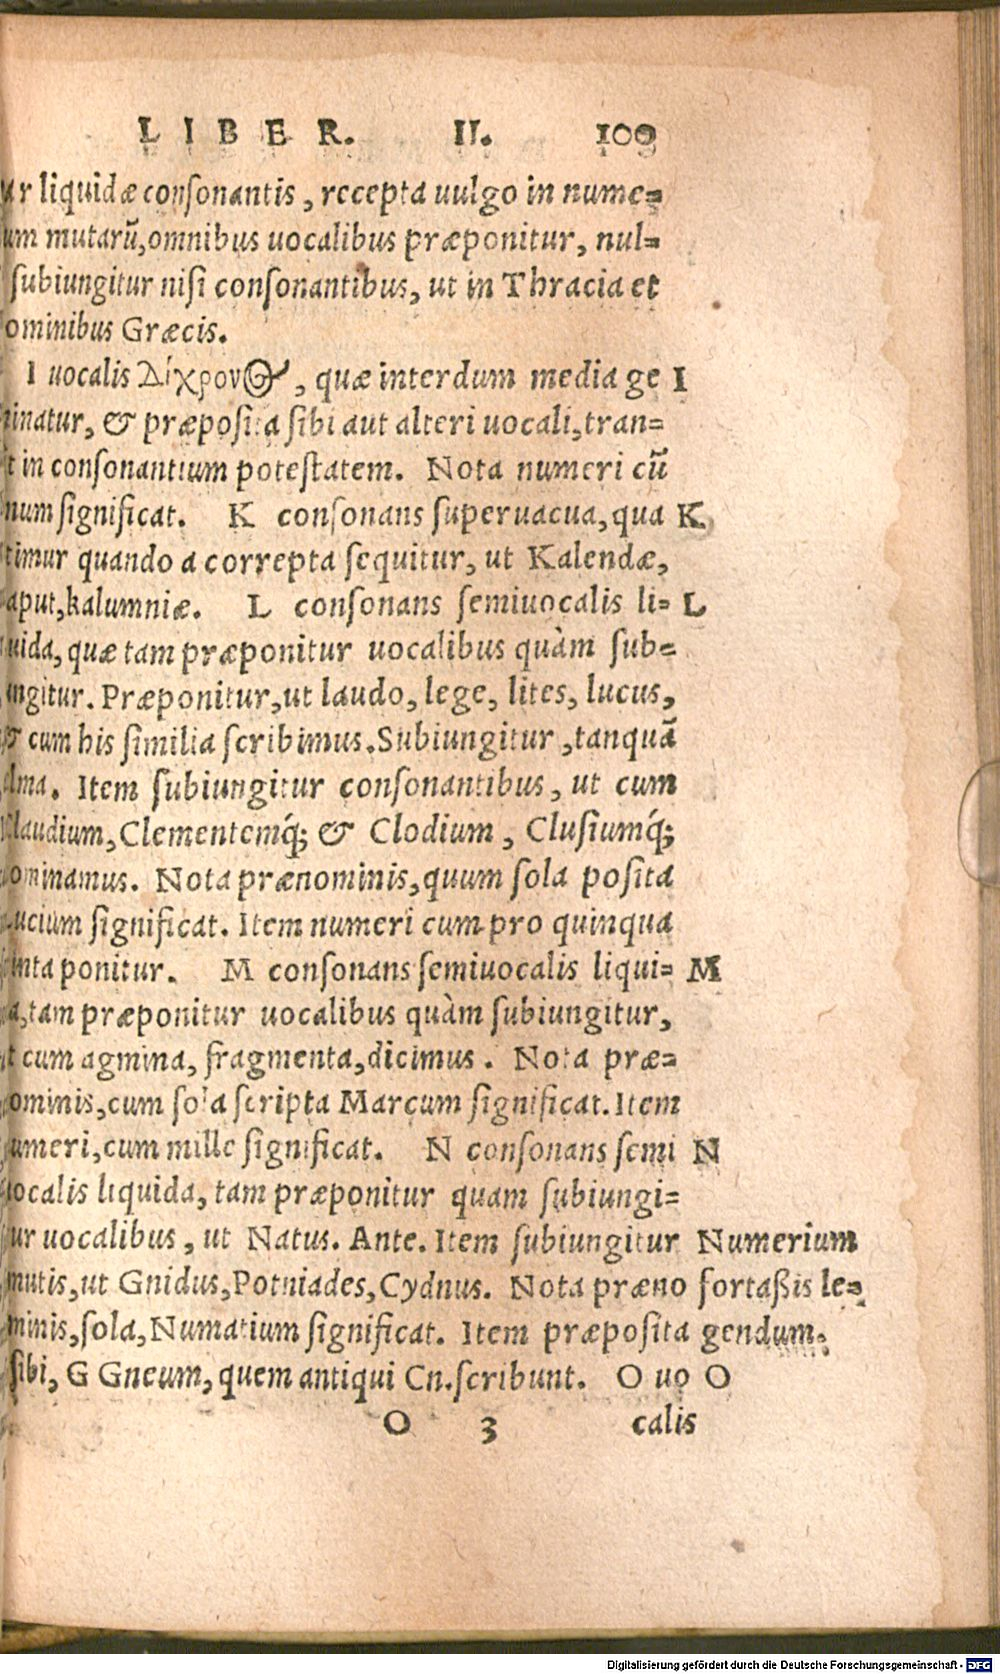 LIBER. II. 109
ur liquidæ conſonantis, recepta uulgo in nume-
um mutarũ, omnibus uocalibus præponitur, nul-
ſubiungitur niſi conſonantibus, ut in Thracia et
ominibus Græcis.
I uocalis Δίχρονος, quæ interdum media ge I
inatur, & præpoſita ſibi aut alteri uocali, tran-
it in conſonantium poteſtatem. Nota numeri cũ
num ſignificat. K conſonans ſuperuacua, qua K
timur quando a correpta ſequitur, ut Kalendæ,
aput, kalumniæ. L conſonans ſemiuocalis li- L
uida, quæ tam præponitur uocalibus quàm ſub-
ungitur. Præponitur, ut laudo, lege, lites, lucus,
& cum his ſimilia ſcribimus. Subiungitur, tanquã
lma. Item ſubiungitur conſonantibus, ut cum
laudium, Clementemq́; & Clodium, Cluſiumq́;
ominamus. Nota prænominis, quum ſola poſita
ucium ſignificat. Item numeri cum pro quinqua
inta ponitur. M conſonans ſemiuocalis liqui- M
a, tam præponitur uocalibus quàm ſubiungitur,
t cum agmina, fragmenta, dicimus. Nota præ-
ominis, cum ſola ſcripta Marcum ſignificat. Item
umeri, cum mille ſignificat. N conſonans ſemi N
ocalis liquida, tam præponitur quam ſubiungi-
ur uocalibus, ut Natus. Ante. Item ſubiungitur Numerium
mutis, ut Gnidus, Potniades, Cydnus. Nota præno fortaßis le-
minis, ſola, Numatium ſignificat. Item præpoſita gendum.
ſibi, G Gneum, quem antiqui Cn. ſcribunt. O uo O
O 3 calis
Digitalisierung gefördert durch die Deutsche Forschungsgemeinschaft - DFG